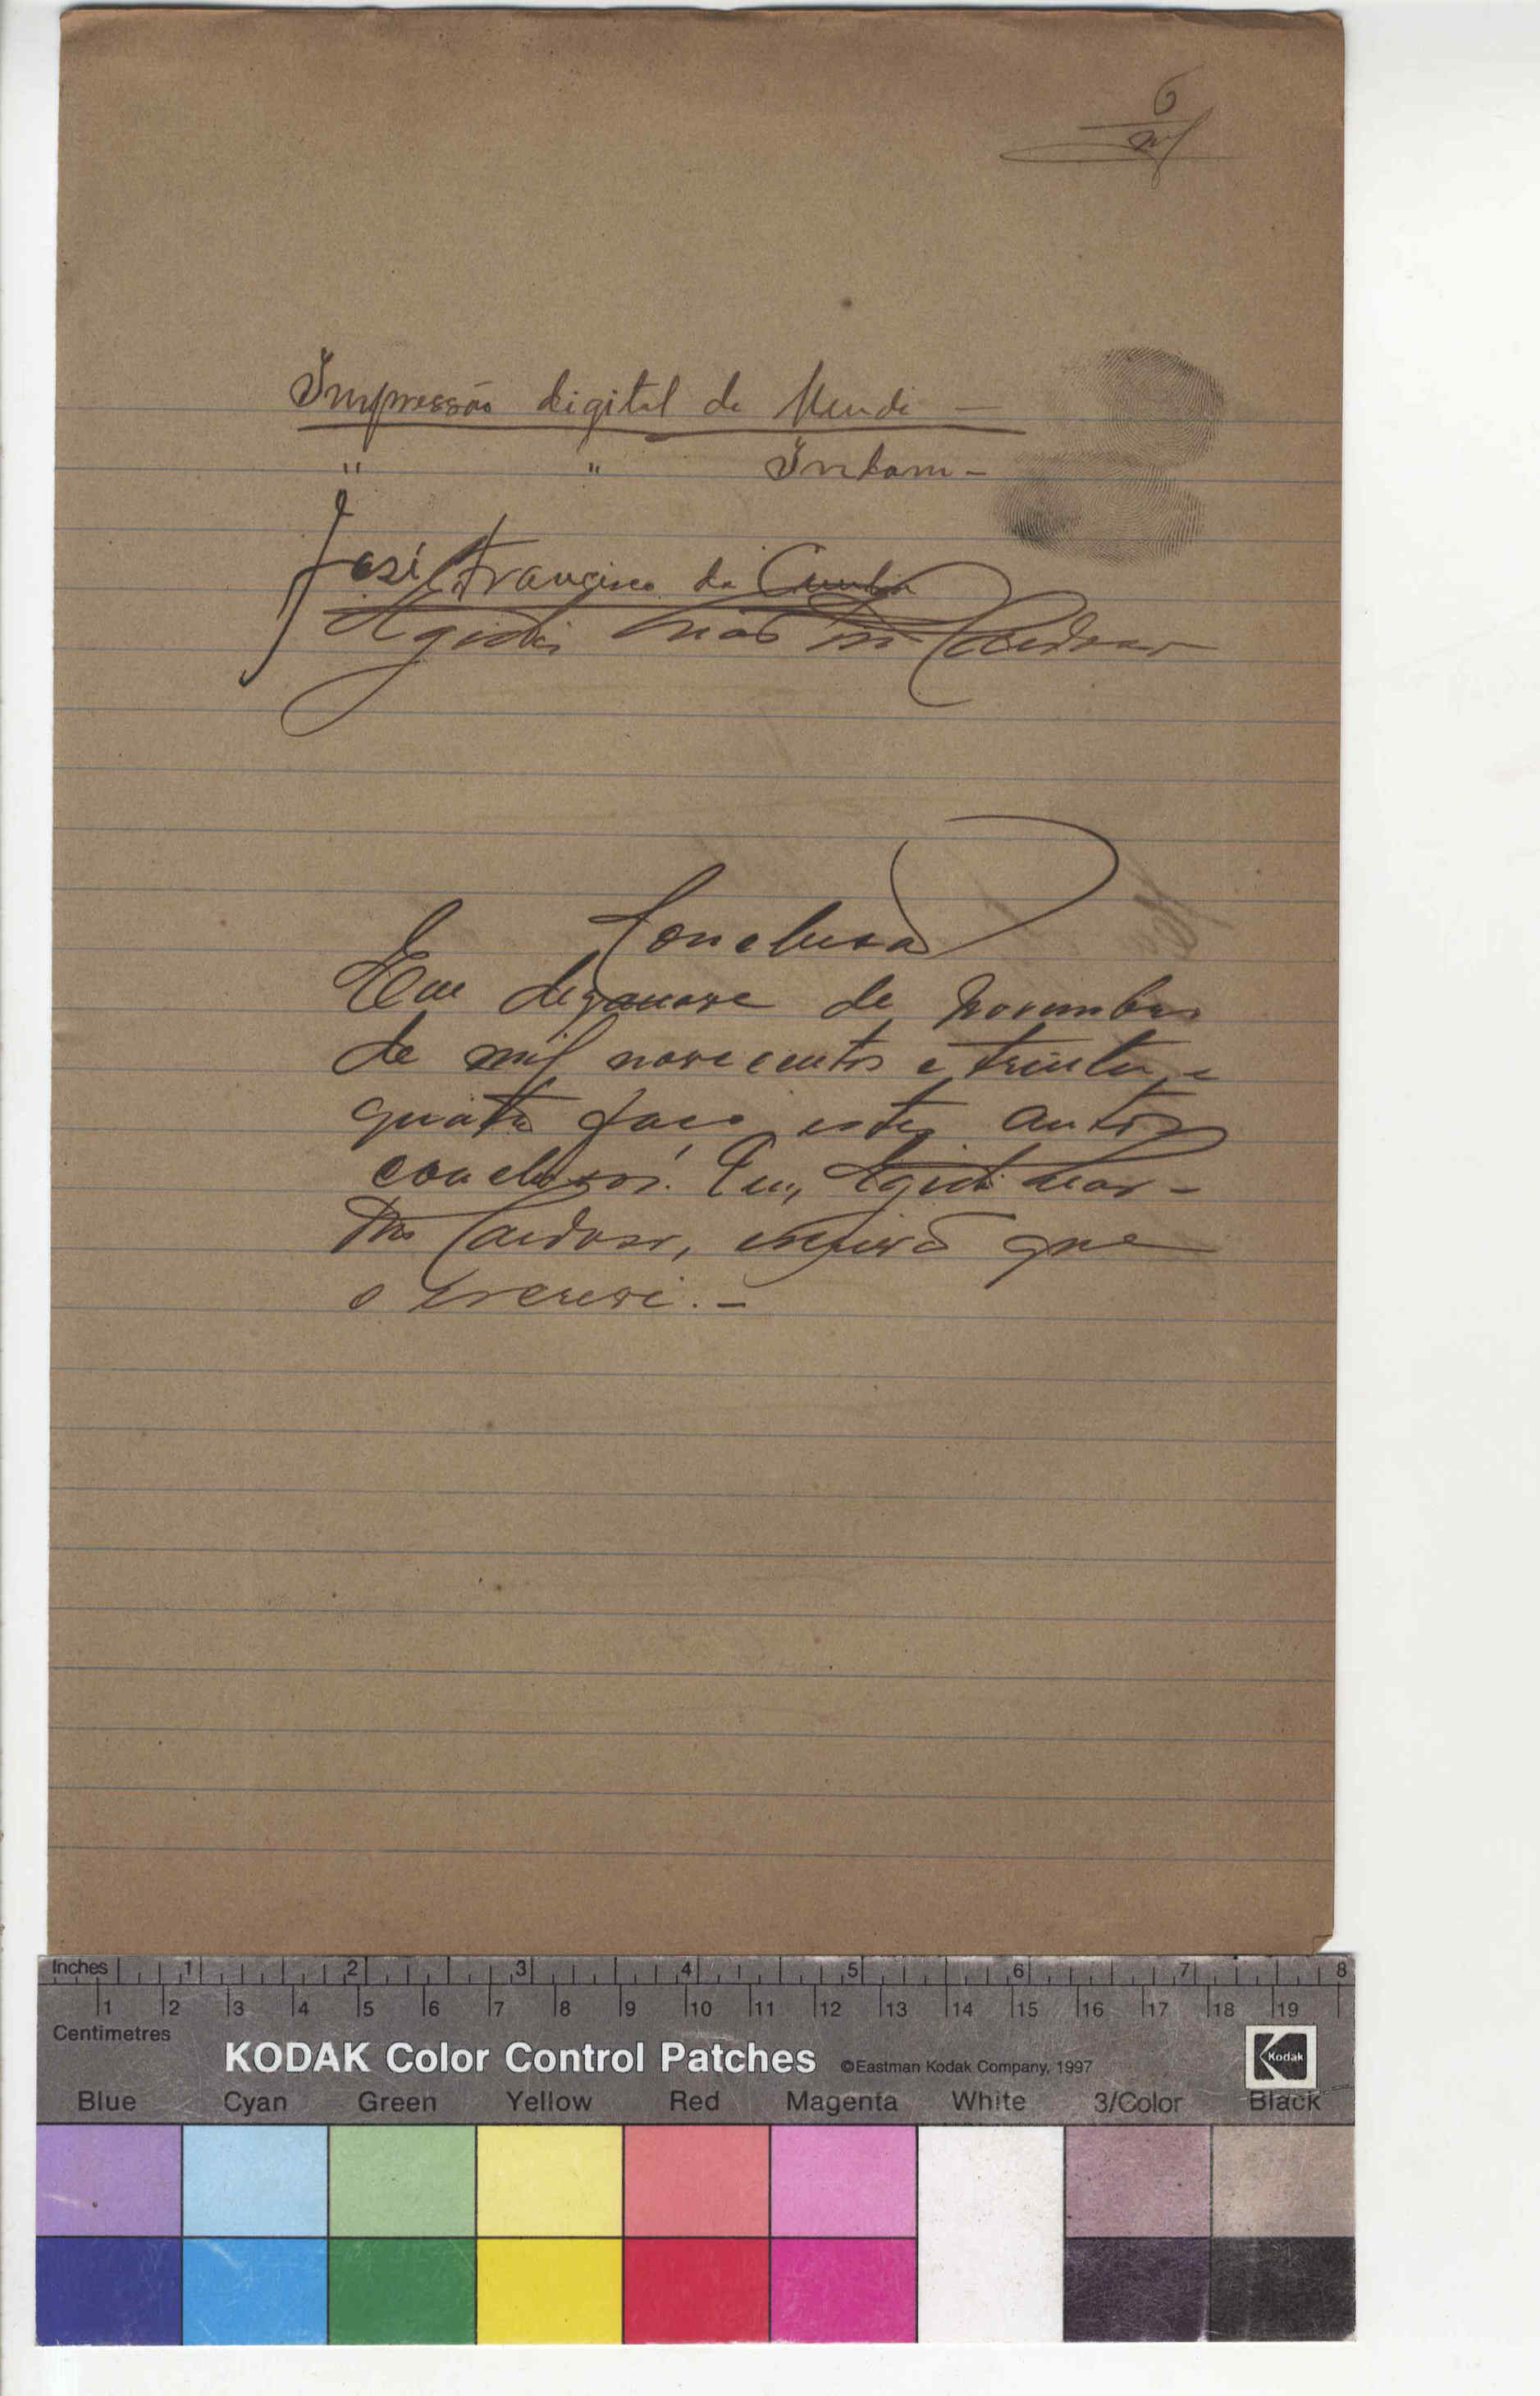 6
Impressão digital de Mendi —
" " Inkam -
José Francisco da Cunha
Cardoso
Conclusão
Em dezenove de novembro
de mil novecentos e trinta e
quatro faço estes autos
conclusos. Eu, Agidio Mar-
tins Cardoso, escrivão que
o escrevi. -
Inches 1 2 3 4 5 6 7 8
1 2 3 4 5 6 7 8 9 10 11 12 13 14 15 16 17 18 19
Centimetres
KODAK Color Control Patches ©Eastman Kodak Company, 1997 Kodak
Blue Cyan Green Yellow Red Magenta White 3/Color Black